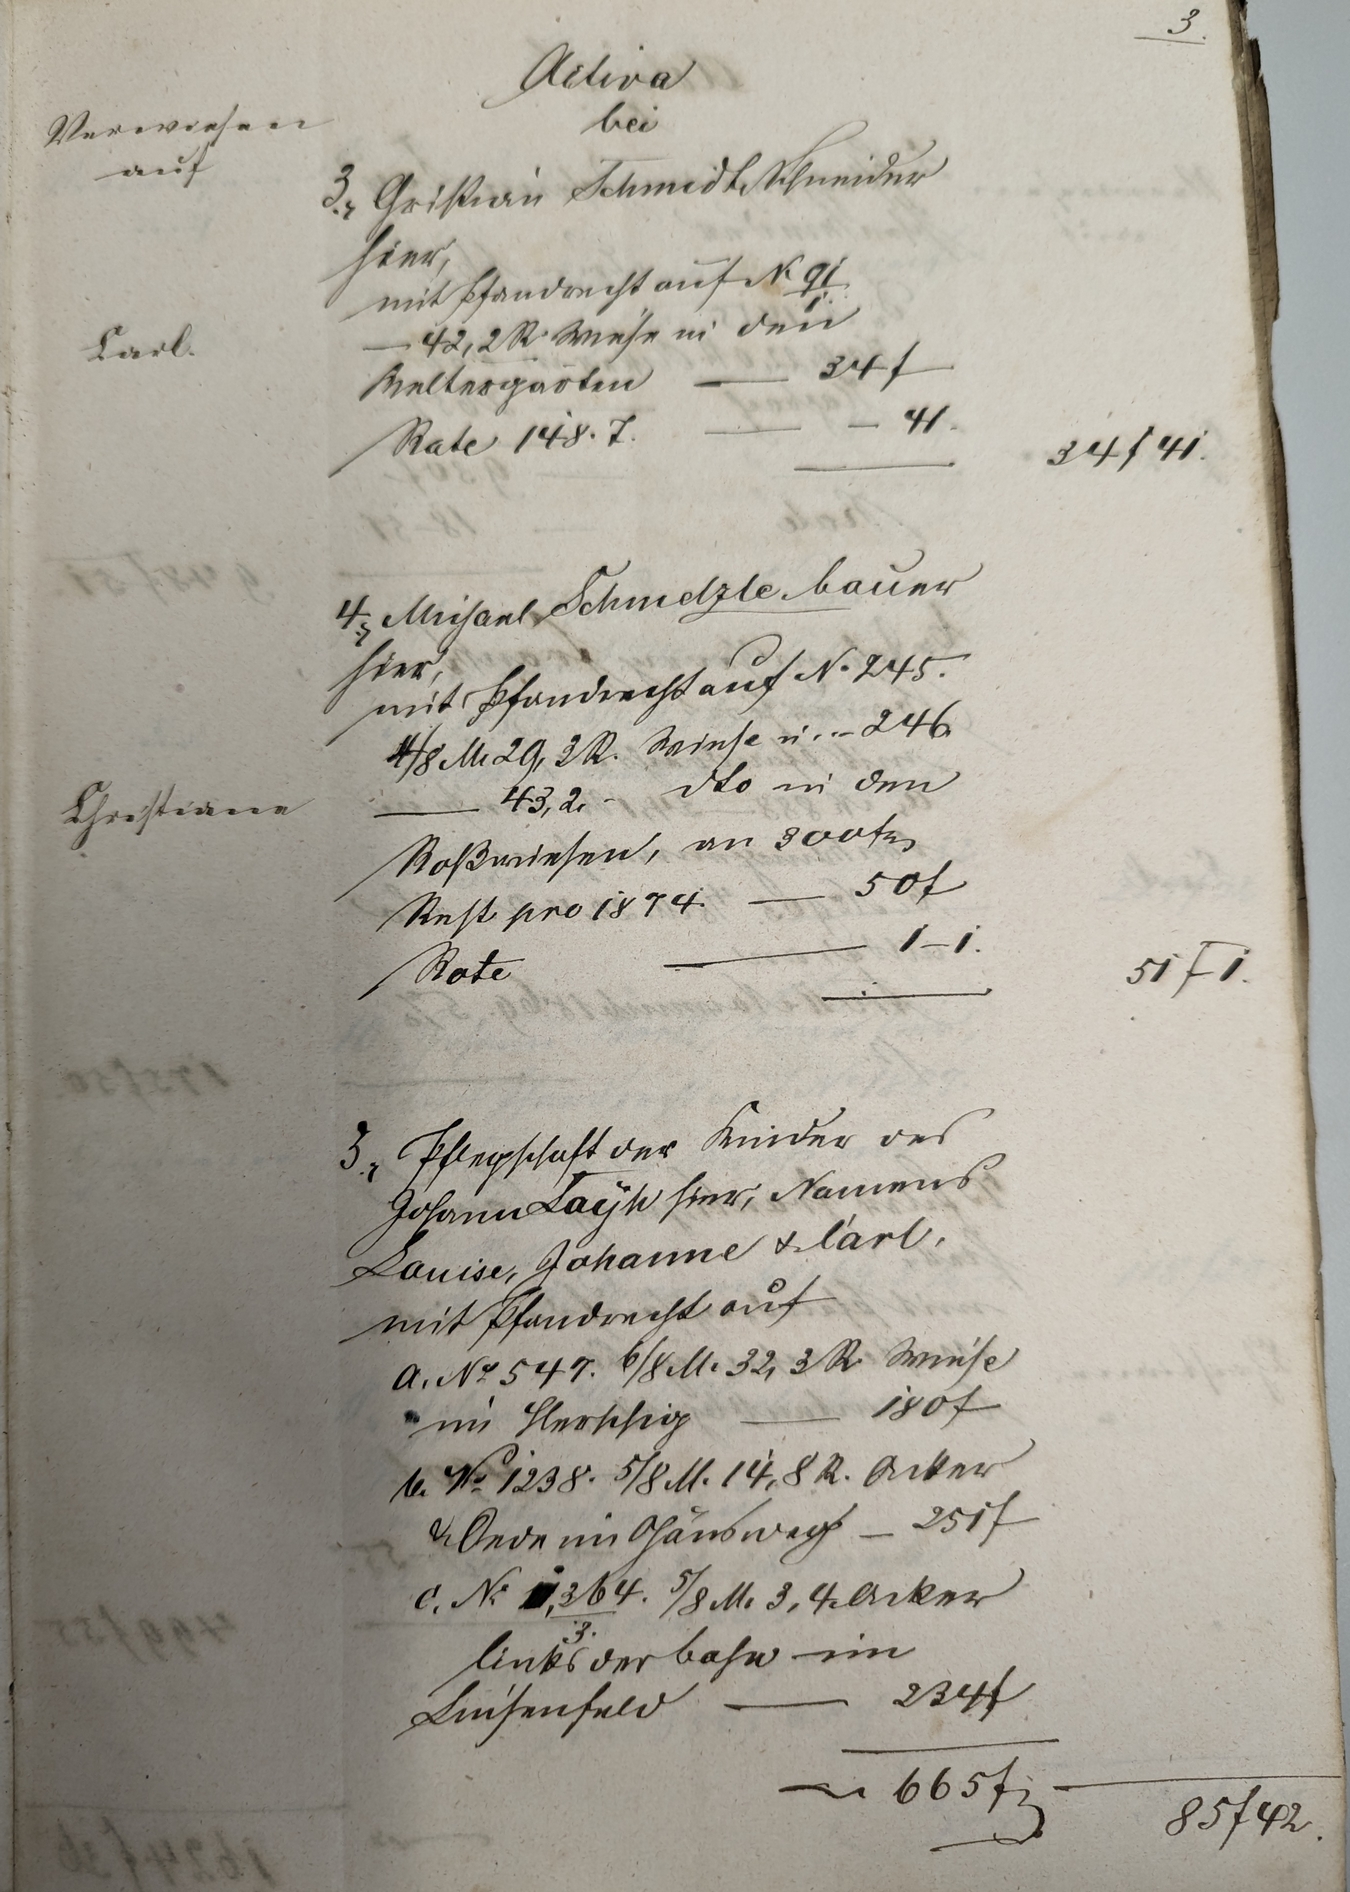 3.
Activa
bei
Verwiesen
auf
3., Christian Schmidt, Schneider
hier,
mit Pfandrecht auf N. 91/1.
— 42,2 R. Wiese in den
Carl.
Keltergärten — 34 f
Rate 148. T. — 41.
34 f 41.
4., Michael Schmelzle, bauer
hier,
mit Pfandrecht auf N. 245.
4/8 M. 29,3 R. Wiese u. - 246
— 43,2. - dto in den
Christiane
Roßwiesen, an 300 f
Rest pro 1874. — 50 f
Rate — 1 - 1.
51 f 1.
5., Pflegschaft der Kinder des
Johann Layh hier, Namens
Louise, Johanne & Carl,
mit Pfandrecht auf
a. No 547. 6/8 M. 32,3 R. Wiese
im — 180 f
b. No 1238. 5/8 M. 14,8 R. Acker
& Oede im Gänsweg — 251 f
c. No 1,364/3. 5/8 M. 3,4. Acker
links der bahn im
Linsenfeld — 234 f
665 f
85 f 42.